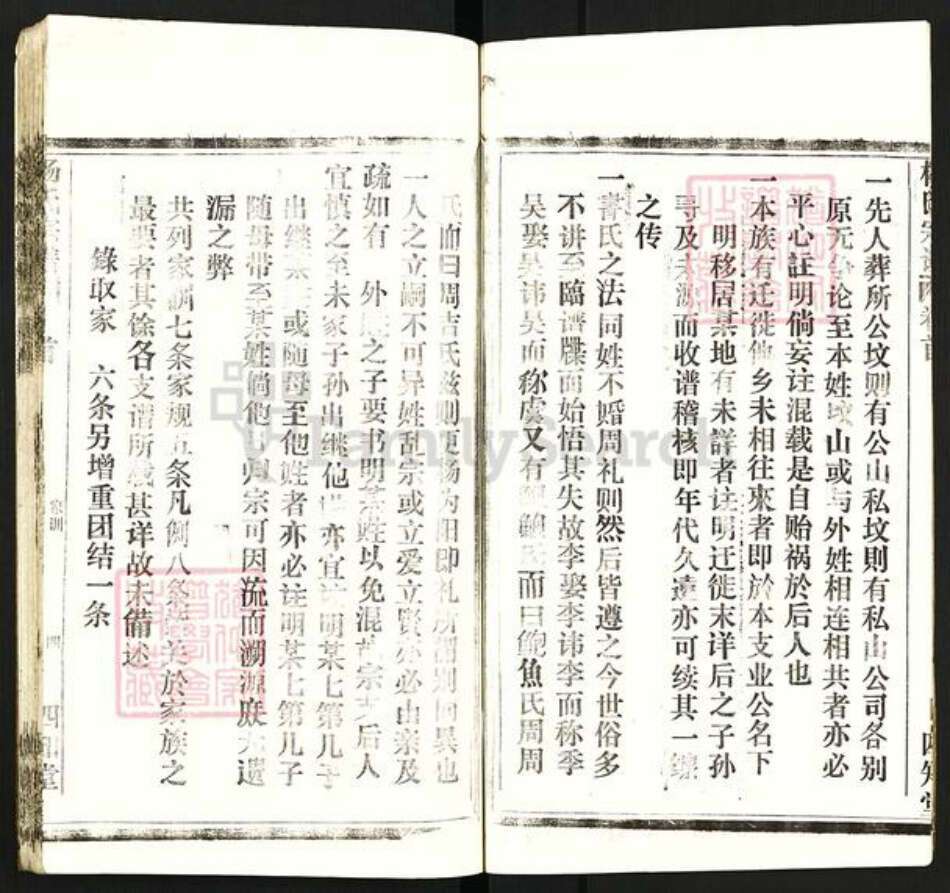 一先人葬所公坟则有公山私坟則有私山公司各别
原无 论至本姓坟山或与外姓相连相共者亦必
平心註明倘妄注混载是自贻祸於后人也
一本族有迁徙他乡未相往來者即於本支业公名下
明移居某地有未詳者注明迁徙末详后之子孙
寻及末源而收谱稽核即年代久遠亦可续其一線
之传
一書氏之法同姓不婚周礼则然后皆遵之今世俗多
不讲至臨谱牒而始悟其失故李娶李讳李而称季
吴娶吴讳吴而称虞又有鲍 鲍氏而曰鲍魚氏周周
氏而曰周吉氏兹则更杨为阳即礼所谓别同異也
一人之立嗣不可异姓乱宗或立爱立賢亦必由亲及
疏如有 外 之子要书明某姓以免混乱宗 后人
宜慎之至未家子孙出继他 亦宜注明某七第几子
出继某 或随母至他姓者亦必注明某七第几子
随母带至某姓倘他 归宗可因流而溯源庶无遗
漏之弊
共列家訓七条家规五条凡例八条 於家族之
最要者其餘各支谱所载甚详故未備述
錄取家 六条另增重团结一条
杨氏宗譜 首
家训
四
四知堂
楊氏宗 卷首
四知堂
FamilySearch